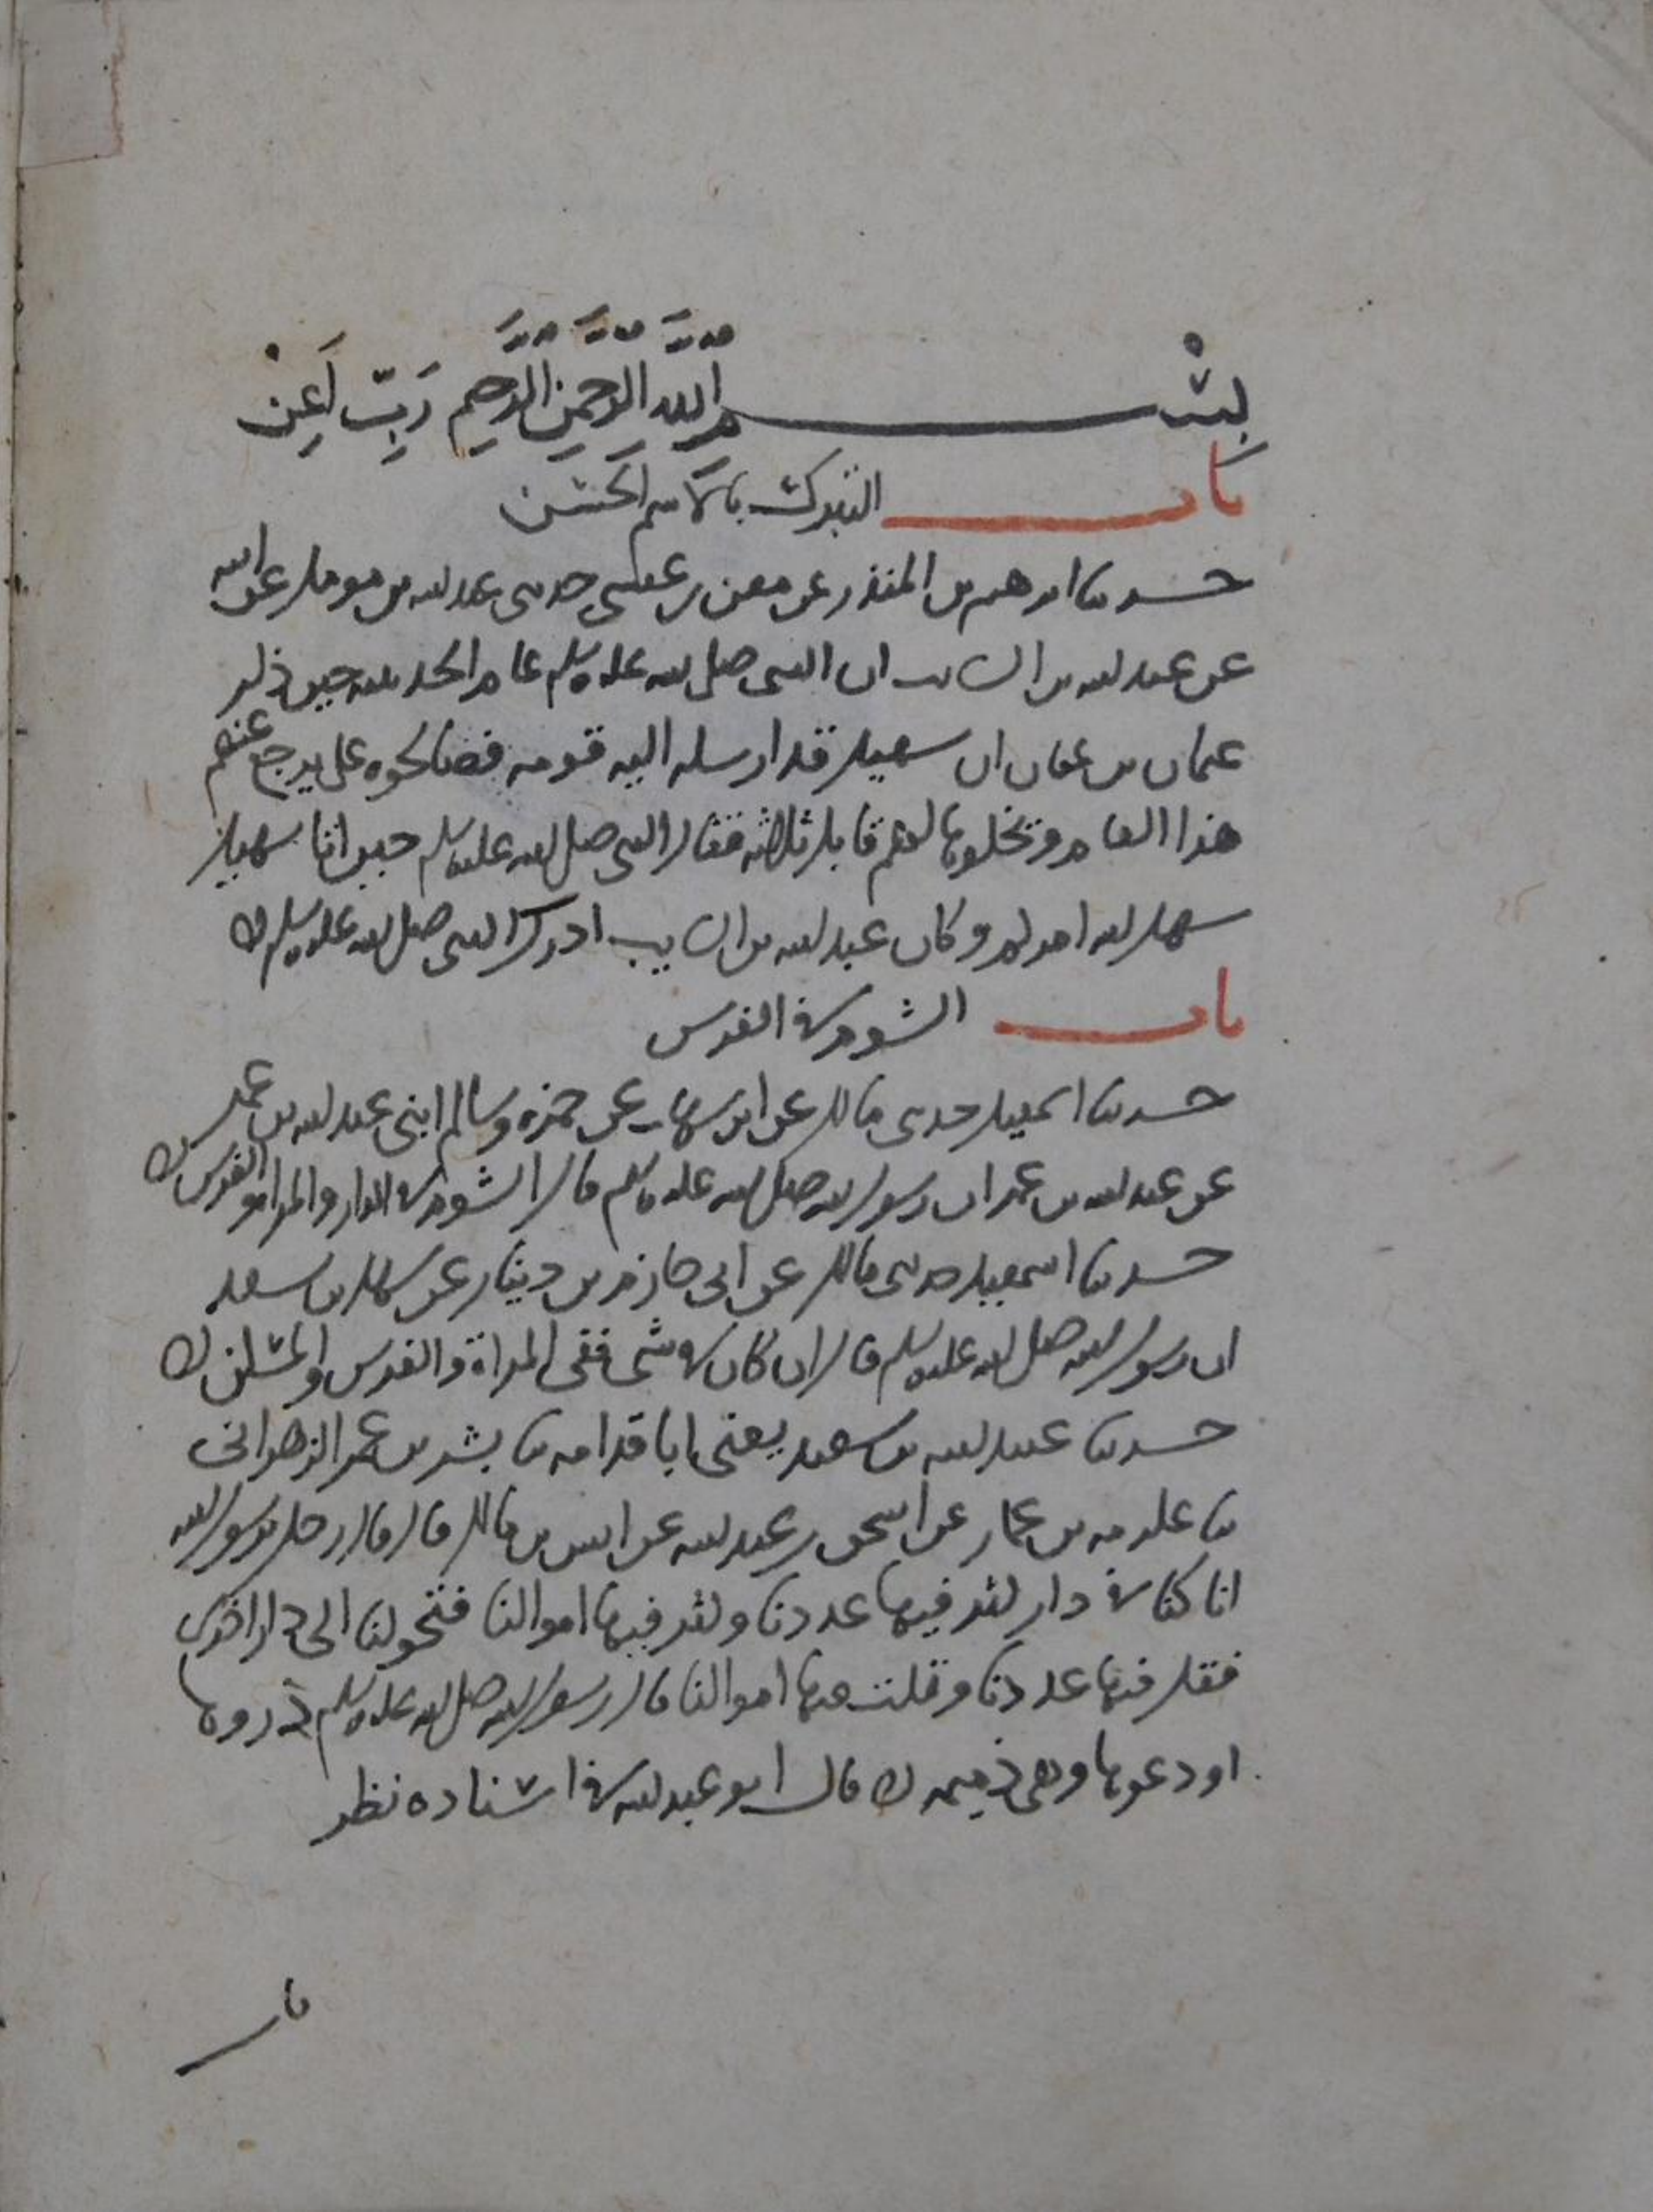 بِسْمِ اللَّهِ الرَّحْمَنِ الرَّحِيمِ رَبِّ أَعِنْ
باب التبرك بالاسم الحسن
حدثنا ابرهيم بن المنذر عن معن بن عيسى حدثني عبد الله بن مومل عن ابيه
عن عبد الله بن السايب ان النبي صلى الله عليه وسلم عام الحديبية حين ذكر
عثمان بن عفان ان سهيل قد ارسله اليه قومه فصالحوه على يرجع عنهم
هذا العام ويخلوها لهم قابل ثلاثة فقال النبي صلى الله عليه وسلم حين اتا سهيل
سهل الله امركم وكان عبد الله بن السايب ادرك النبي صلى الله عليه وسلم
باب الشوم في الفرس
حدثنا اسمعيل حدثني مالك عن ابن شهاب عن حمزة وسالم ابني عبد الله بن عمر
عن عبد الله بن عمر ان رسول الله صلى الله عليه وسلم قال الشوم في الدار والمراه والفرس
حدثنا اسمعيل حدثني مالك عن ابي حازم بن دينار عن سهل بن سعد
ان رسول الله صلى الله عليه وسلم قال ان كان في شي ففي المراة والفرس والمسكن
حدثنا عبيد الله بن سعيد يعني ابا قدامه نا بشر بن عمر الزهراني
نا عكرمه بن عمار عن اسحق بن عبد الله عن انس بن مالك قال قال رجل يرسول الله
انا كنا في دار كثر فيها عددنا وكثر فيها اموالنا فتحولنا الى دار اخرى
فقل فيها عددنا وقلت فيها اموالنا قال رسول الله صلى الله عليه وسلم ذروها
او دعوها وهي ذميمه قال ابو عبد الله في اسناده نظر
باب